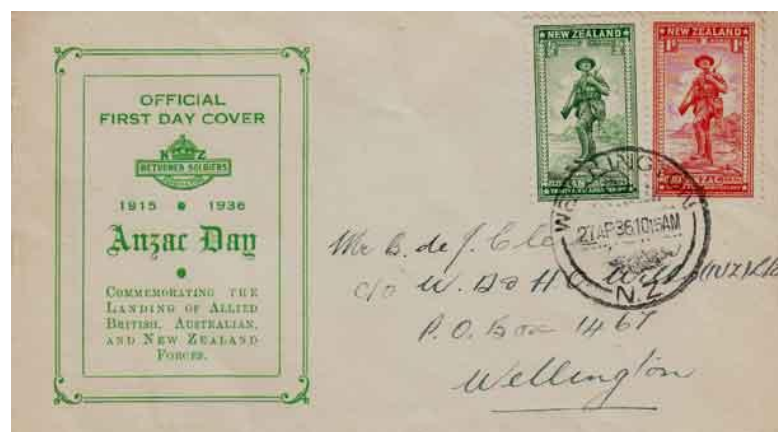 OFFICIAL
FIRST DAY COVER
N Z
RETURNED SOLDIERS
ASSOCIATION
1915 • 1936
Anzac Day
COMMEMORATING THE
LANDING OF ALLIED
BRITISH, AUSTRALIAN,
AND NEW ZEALAND
FORCES.
NEW ZEALAND
½d ½d
NEW ZEALAND
1D 1D
ANZAC
WELLINGTON
27 AP 36 10 15 AM
N.Z
Mr B. de J.
c/o W. D & H O Wills (NZ) Ltd
P.O. Box 1467
Wellington